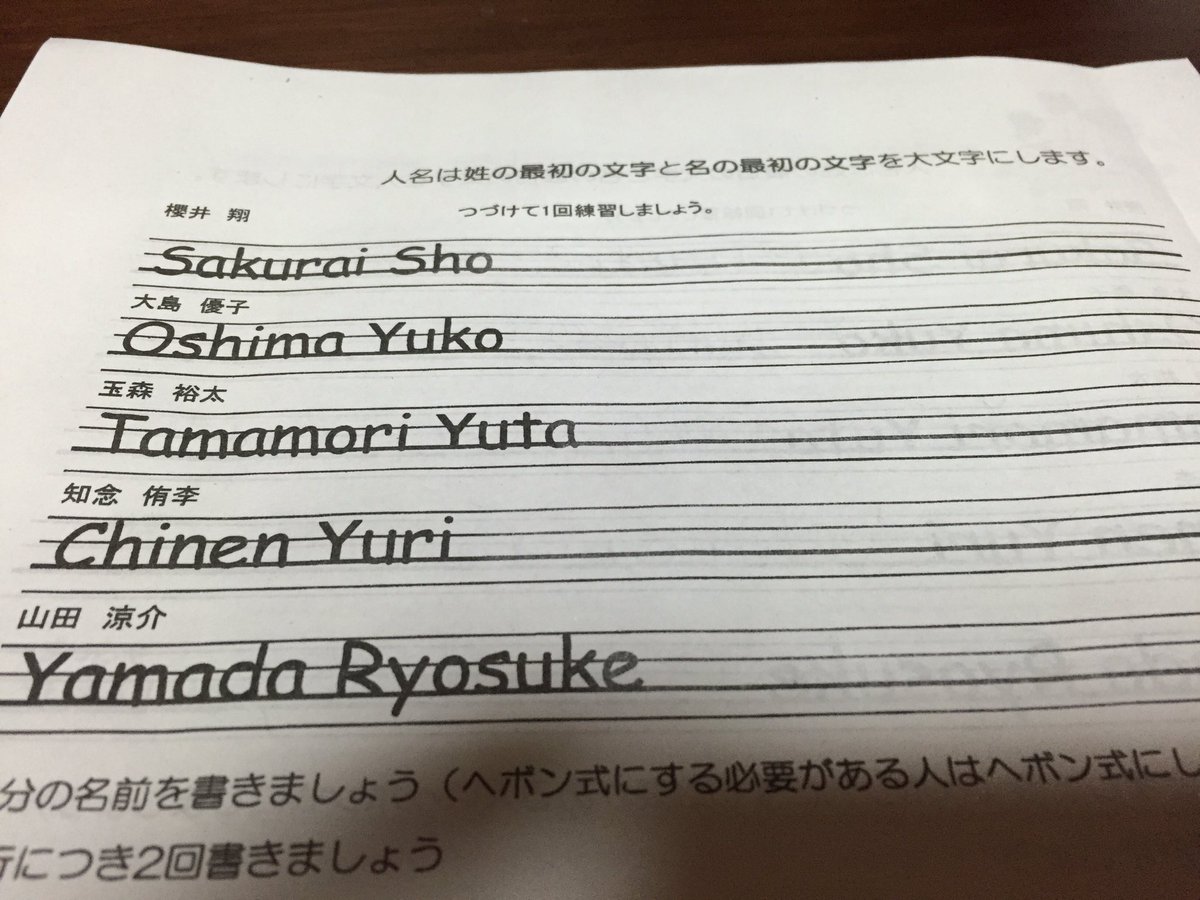 人名は姓の最初の文字と名の最初の文字を大文字にします。
つづけて1回練習しましょう。
櫻井 翔
Sakurai Sho
大島 優子
Oshima Yuko
玉森 裕太
Tamamori Yuta
知念 侑李
Chinen Yuri
山田 涼介
Yamada Ryosuke
分の名前を書きましょう（ヘボン式にする必要がある人はヘボン式にし
行につき2回書きましょう